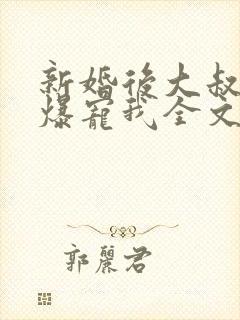 新婚後大叔
爆寵我全文
郭麗君